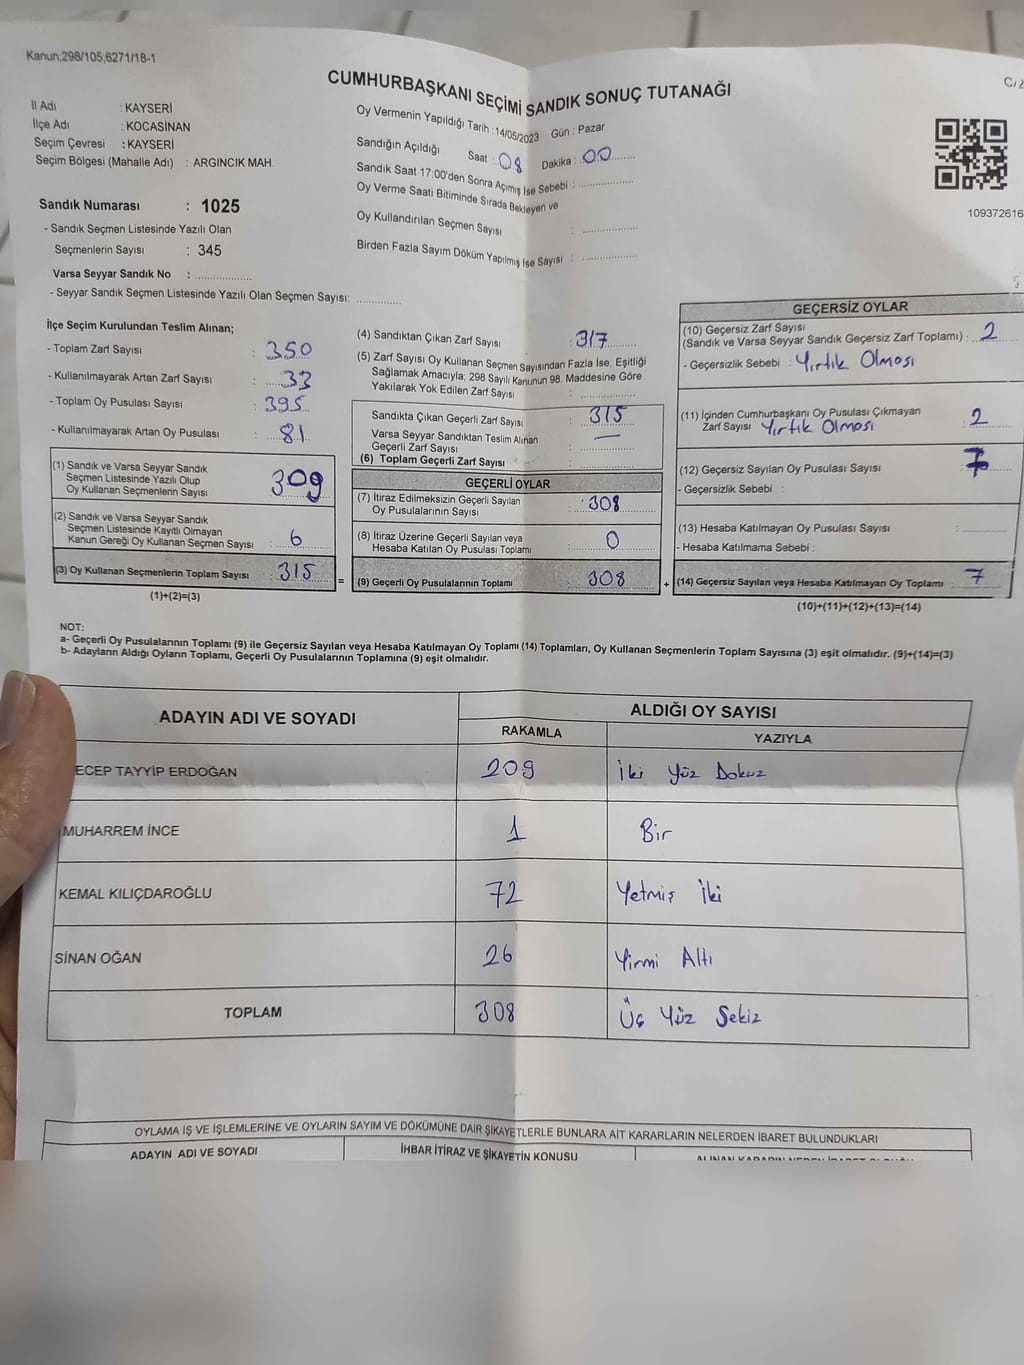 Kanun,298/105,6271/18-1
CUMHURBAŞKANI SEÇİMİ SANDIK SONUÇ TUTANAĞI
İl Adı : KAYSERİ
İlçe Adı : KOCASİNAN
Seçim Çevresi : KAYSERİ
Seçim Bölgesi (Mahalle Adı) : ARGINCIK MAH.
Sandık Numarası : 1025
- Sandık Seçmen Listesinde Yazılı Olan
Seçmenlerin Sayısı : 345
Varsa Seyyar Sandık No : ..............
- Seyyar Sandık Seçmen Listesinde Yazılı Olan Seçmen Sayısı: ............
Oy Vermenin Yapıldığı Tarih : 14/05/2023 Gün : Pazar
Sandığın Açıldığı Saat : 08 Dakika : 00
Sandık Saat 17:00'den Sonra Açımış İse Sebebi : ..............
Oy Verme Saati Bitiminde Sırada Bekleyen ve
Oy Kullandırılan Seçmen Sayısı : ..............
Birden Fazla Sayım Döküm Yapılmış İse Sayısı : ..............
109372616
İlçe Seçim Kurulundan Teslim Alınan;
- Toplam Zarf Sayısı : 350
- Kullanılmayarak Artan Zarf Sayısı : 33
- Toplam Oy Pusulası Sayısı : 395
- Kullanılmayarak Artan Oy Pusulası : 81
(1) Sandık ve Varsa Seyyar Sandık
Seçmen Listesinde Yazılı Olup
Oy Kullanan Seçmenlerin Sayısı : 309
(2) Sandık ve Varsa Seyyar Sandık
Seçmen Listesinde Kayıtlı Olmayan
Kanun Gereği Oy Kullanan Seçmen Sayısı : 6
(3) Oy Kullanan Seçmenlerin Toplam Sayısı : 315
(1)+(2)=(3)
=
(4) Sandıktan Çıkan Zarf Sayısı : 317
(5) Zarf Sayısı Oy Kullanan Seçmen Sayısından Fazla İse, Eşitliği
Sağlamak Amacıyla; 298 Sayılı Kanunun 98. Maddesine Göre
Yakılarak Yok Edilen Zarf Sayısı : ..............
Sandıkta Çıkan Geçerli Zarf Sayısı : 315
Varsa Seyyar Sandıktan Teslim Alınan
Geçerli Zarf Sayısı : —
(6) Toplam Geçerli Zarf Sayısı : ..............
GEÇERLİ OYLAR
(7) İtiraz Edilmeksizin Geçerli Sayılan
Oy Pusulalarının Sayısı : 308
(8) İtiraz Üzerine Geçerli Sayılan veya
Hesaba Katılan Oy Pusulası Toplamı : 0
(9) Geçerli Oy Pusulalarının Toplamı : 308
+
GEÇERSİZ OYLAR
(10) Geçersiz Zarf Sayısı
(Sandık ve Varsa Seyyar Sandık Geçersiz Zarf Toplamı) : 2
- Geçersizlik Sebebi : Yırtık Olması
(11) İçinden Cumhurbaşkanı Oy Pusulası Çıkmayan
Zarf Sayısı Yırtık Olması : 2
(12) Geçersiz Sayılan Oy Pusulası Sayısı : 7
- Geçersizlik Sebebi :
(13) Hesaba Katılmayan Oy Pusulası Sayısı : ..............
- Hesaba Katılmama Sebebi :
(14) Geçersiz Sayılan veya Hesaba Katılmayan Oy Toplamı : 7
(10)+(11)+(12)+(13)=(14)
NOT:
a- Geçerli Oy Pusulalarının Toplamı (9) ile Geçersiz Sayılan veya Hesaba Katılmayan Oy Toplamı (14) Toplamları, Oy Kullanan Seçmenlerin Toplam Sayısına (3) eşit olmalıdır. (9)+(14)=(3)
b- Adayların Aldığı Oyların Toplamı, Geçerli Oy Pusulalarının Toplamına (9) eşit olmalıdır.
ADAYIN ADI VE SOYADI
ALDIĞI OY SAYISI
RAKAMLA YAZIYLA
ECEP TAYYİP ERDOĞAN 209 İki Yüz Dokuz
MUHARREM İNCE 1 Bir
KEMAL KILIÇDAROĞLU 72 Yetmiş İki
SİNAN OĞAN 26 Yirmi Altı
TOPLAM 308 Üç Yüz Sekiz
OYLAMA İŞ VE İŞLEMLERİNE VE OYLARIN SAYIM VE DÖKÜMÜNE DAİR ŞİKAYETLERLE BUNLARA AİT KARARLARIN NELERDEN İBARET BULUNDUKLARI
ADAYIN ADI VE SOYADI İHBAR İTİRAZ VE ŞİKAYETİN KONUSU